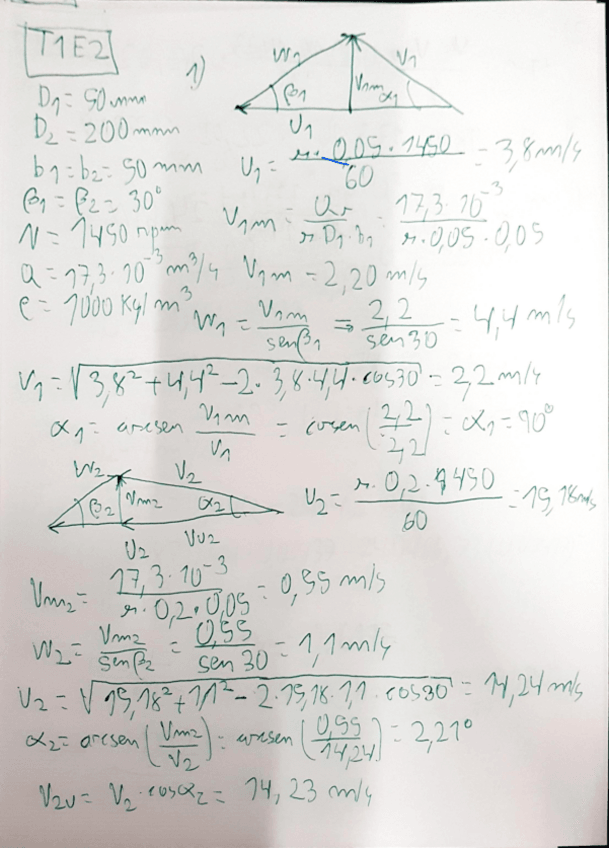 T1E2
1)
W1 V1
β1 V1m α1
U1
D1 = 50 mm
D2 = 200 mm
b1 = b2 = 50 mm
β1 = β2 = 30°
N = 1450 rpm
Q = 17,3·10⁻³ m³/s
ρ = 1000 Kg/m³
U1 = π·0,05·1450 / 60 = 3,8 m/s
V1m = Q / π·D1·b1 = 17,3·10⁻³ / π·0,05·0,05
V1m = 2,20 m/s
W1 = V1m / senβ1 ⇒ 2,2 / sen30 = 4,4 m/s
V1 = √(3,8² + 4,4² - 2·3,8·4,4·cos30) = 2,2 m/s
α1 = arcsen V1m / V1 = arcsen (2,2 / 2,2) = α1 = 90°
W2 V2
β2 Vm2 α2
U2 VU2
U2 = π·0,2·1450 / 60 = 15,18 m/s
Vm2 = 17,3·10⁻³ / π·0,2·0,05 = 0,55 m/s
W2 = Vm2 / senβ2 = 0,55 / sen 30 = 1,1 m/s
V2 = √(15,18² + 1,1² - 2·15,18·1,1·cos30) = 14,24 m/s
α2 = arcsen (Vm2 / V2) = arcsen (0,55 / 14,24) = 2,21°
V2U = V2·cosα2 = 14,23 m/s